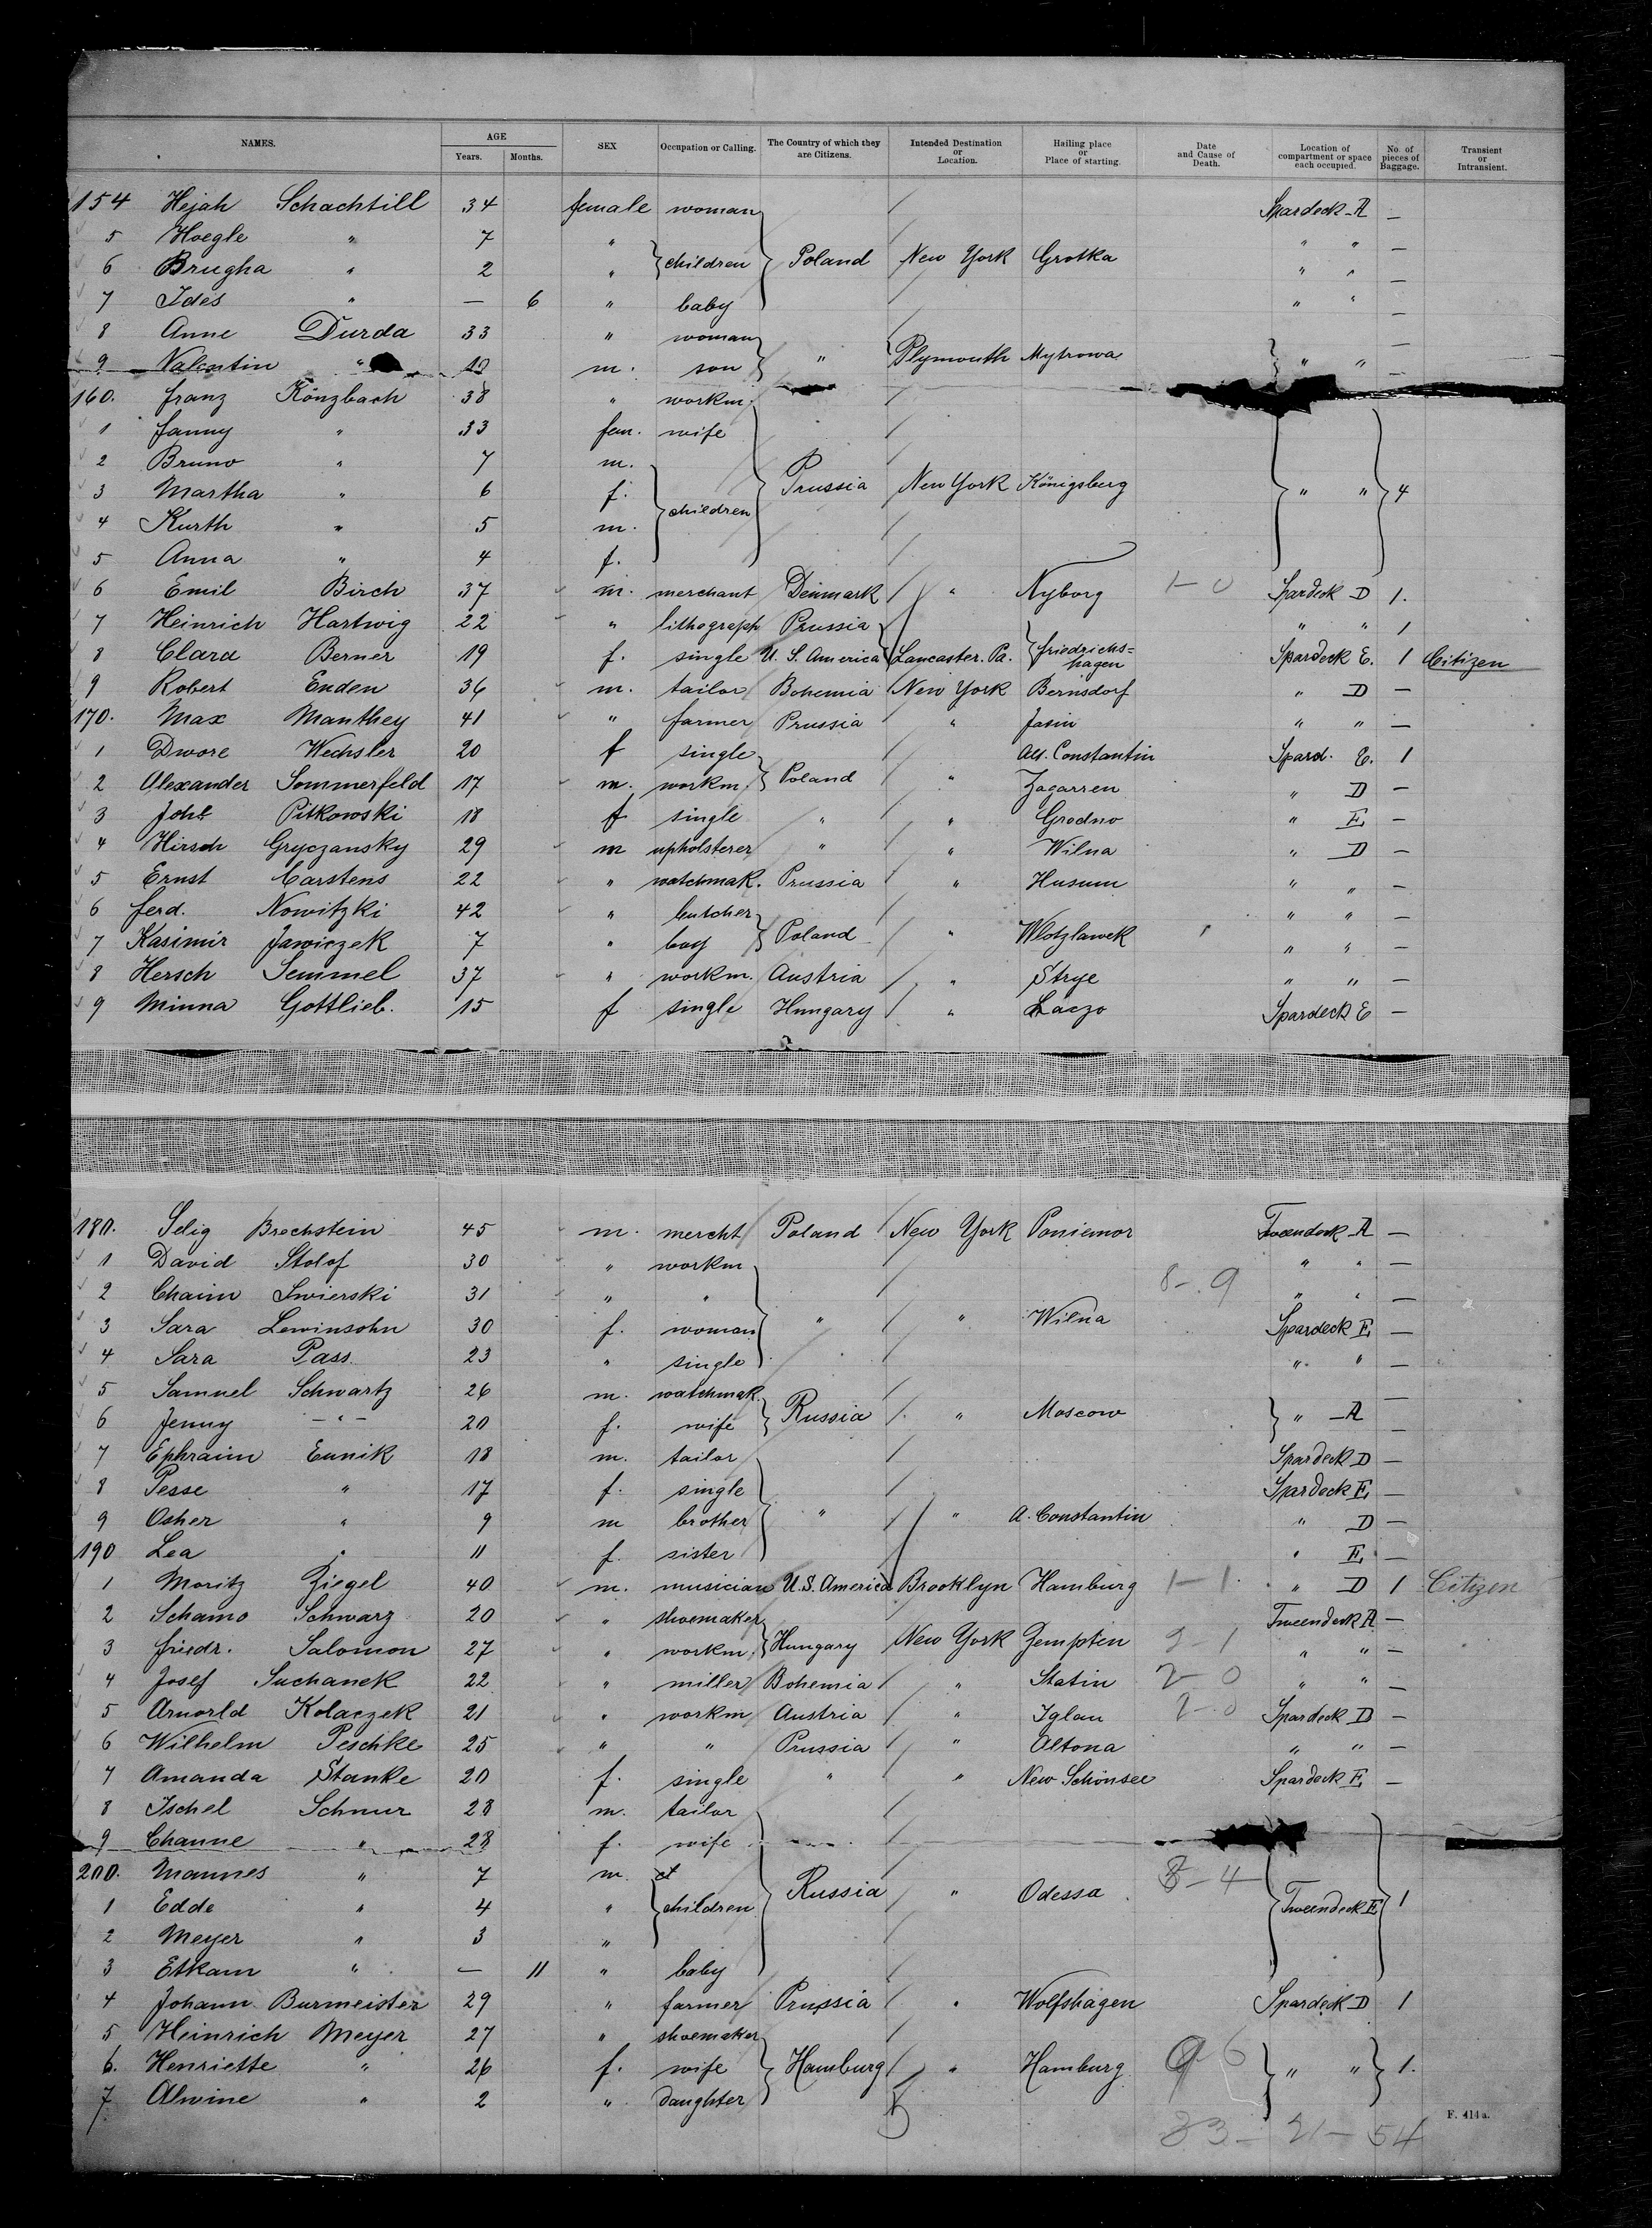 NAMES. AGE Years. Months. SEX Occupation or Calling. The Country of which they are Citizens. Intended Destination or Location. Hailing place or Place of starting. Date and Cause of Death. Location of compartment or space each occupied. No. of pieces of Baggage. Transient or Intransient.
154 Hejah Schachtill 34 female woman Spardeck A —
5 Hoegle " 7 " " " —
6 Brugha " 2 " children Poland New York Grotka " " —
7 Ides " — 6 " baby " " —
8 Anne Durda 33 " woman —
9 Valentin " 10 m. son " Plymouth Mytrowa " " —
160. Franz Könzbach 38 " workm.
1 Fanny " 33 fem. wife
2 Bruno " 7 m.
3 Martha " 6 f. children Prussia New York Königsberg " " 4
4 Kurth " 5 m.
5 Anna " 4 f.
6 Emil Birch 37 m. merchant Denmark " Nyborg 1-0 Spardeck D 1.
7 Heinrich Hartwig 22 " lithograph Prussia " " 1
8 Clara Berner 19 f. single U. S. America Lancaster. Pa. Friedrichs=hagen Spardeck E. 1 Citizen
9 Robert Enden 36 m. tailor Bohemia New York Bernsdorf " D —
170. Max Manthey 41 " farmer Prussia " Jasin " " —
1 Dwore Wechsler 20 f single Alt. Constantin Spard. E. 1
2 Alexander Sommerfeld 17 m. workm. Poland " Zagarren " D —
3 Pitkowski 18 f single " " Grodno " E —
4 Hirsch Gryczansky 29 m upholsterer " " Wilna " D —
5 Ernst Carstens 22 " watchmak. Prussia " Husum " " —
6 Ferd. Nowitzki 42 " butcher " " —
7 Kasimir Jawiczek 7 " boy Poland " Wlotzlawek " " —
8 Hersch Semmel 37 " workm. Austria " Strye " " —
9 Minna Gottlieb. 15 f single Hungary " Laczo Spardeck E —
180. Selig Brechstein 45 m. mercht Poland New York Poniemor Tweendeck A —
1 David Stolof 30 " workm " " —
2 Chaim Swierski 31 " " 8-9 " " —
3 Sara Lewinsohn 30 f. woman " " Wilna Spardeck E —
4 Sara Pass. 23 " single " " —
5 Samuel Schwartz 26 m. watchmak. —
6 Jenny — " — 20 f. wife Russia " Moscow " A —
7 Ephraim Eunik 18 m. tailor Spardeck D —
8 Pesse " 17 f. single Spardeck E —
9 Osher " 9 m brother " " A. Constantin " D —
190 Lea " 11 f. sister " E —
1 Moritz Ziegel 40 m. musician U.S. America Brooklyn Hamburg 1-1 " D 1 Citizen
2 Schamo Schwarz 20 " shoemaker Tweendeck A —
3 Friedr. Salomon 27 " workm. Hungary New York Zempten 2-1 " " —
4 Josef Suchanek 22 " miller Bohemia " Statin 2-0 " " —
5 Arnorld Kolaczek 21 " workm Austria " Iglau 2-0 Spardeck D —
6 Wilhelm Peschke 25 " " Prussia " Altona " " —
7 Amanda Stanke 20 f. single " " New Schönsee Spardeck E —
8 Ischel Schnur 28 m. tailor
9 Channe " 28 f. wife
200. Mannes " 7 m. 8-4
1 Edde " 4 " children Russia " Odessa Tweendeck E 1
2 Meyer " 3 "
3 Etkam " — 11 " baby
4 Johann Burmeister 29 " farmer Prussia " Wolfshagen Spardeck D 1
5 Heinrich Meyer 27 " shoemaker
6. Henriette " 26 f. wife Hamburg " Hamburg " " 1.
7 Alwine " 2 " daughter
F. 414 a.
83 - 21 - 54